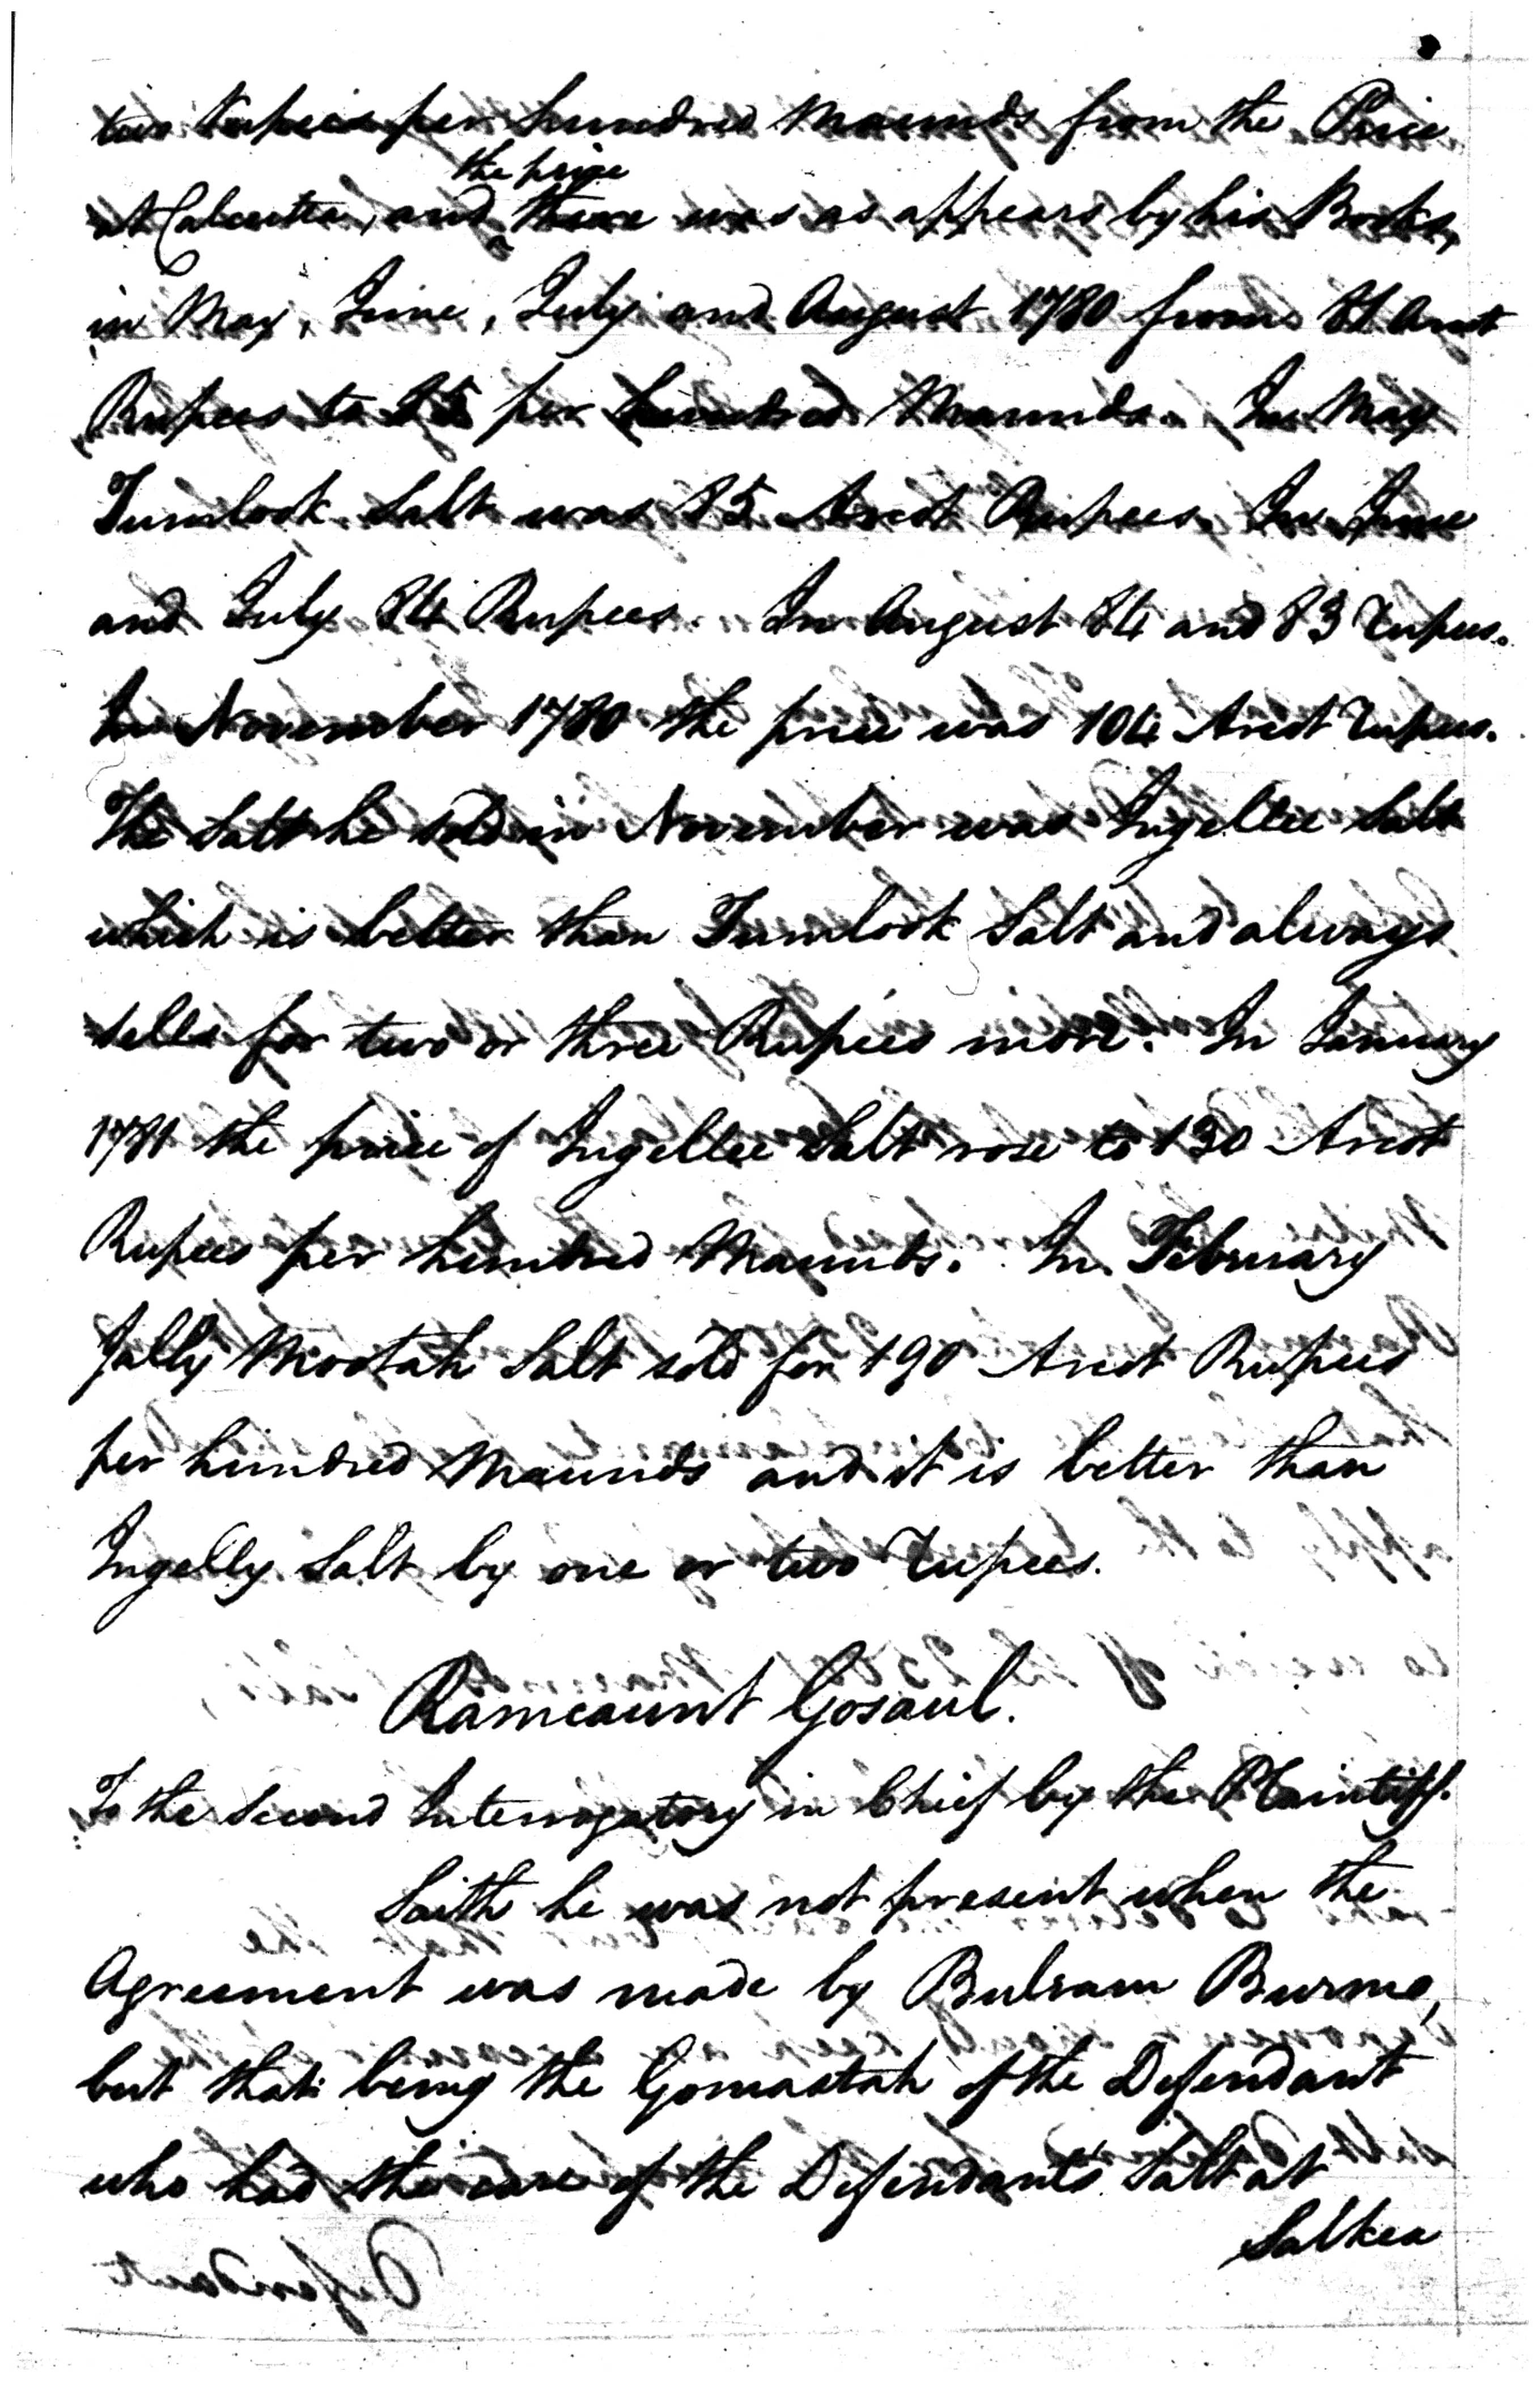 two Rupees per hundred Maunds from the Price
the price
at Calcutta, and there was as appears by his Books,
in May, June, July and August 1780 from 81 Arcot
Rupees to 85 per hundred Maunds. In May
Tumlook Salt was 85 Arcot Rupees. In June
and July 84 Rupees. In August 84 and 83 rupees.
In November 1780 the price was 104 Arcot rupees.
The Salt he sold in November was Ingellee Salt
which is better than Tumlook Salt and always
sells for two or three Rupees more. In January
1781 the price of Ingellee Salt rose to 130 Arcot
Rupees per hundred Maunds. In February
Jally Mootah Salt sold for 190 Arcot Rupees
per hundred Maunds and it is better than
Ingelly Salt by one or two rupees.
Ramcaunt Gosaul.
To the Second Interrogatory in Chief by the Plaintiff.
Saith he was not present when the
Agreement was made by Bulram Burmo,
but that being the Gomastah of the Defendant
who had the care of the Defendant's Salt at
Salkea